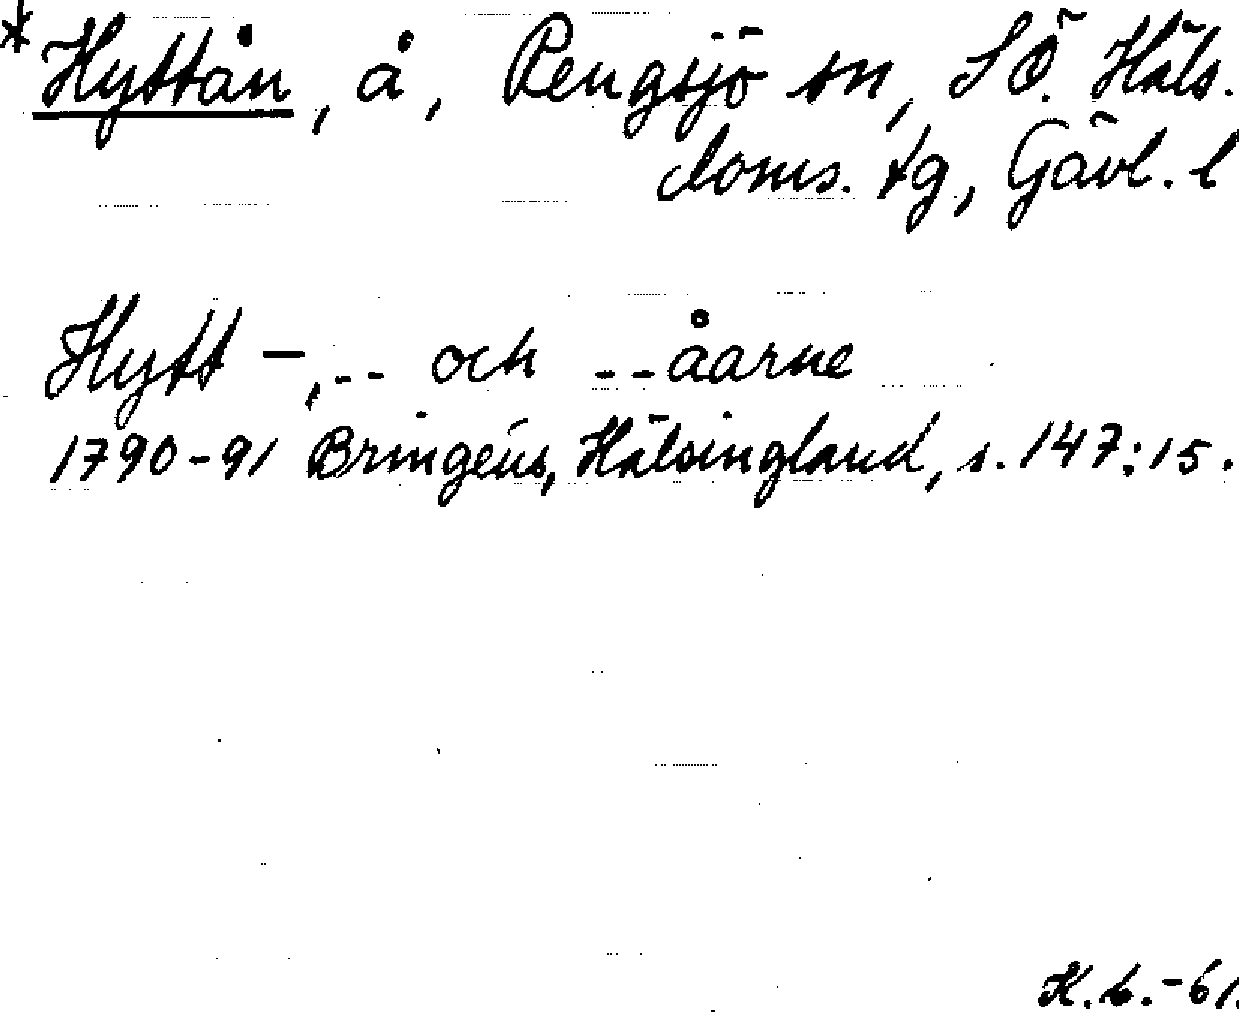 * Hyttån, å, Rengsjö sn, SÖ. Häls.
doms. tg, Gävl. l
Hytt –, -- och --åarne
1790-91 Bringéus, Hälsingland, s. 147:15.
K.L.-61.